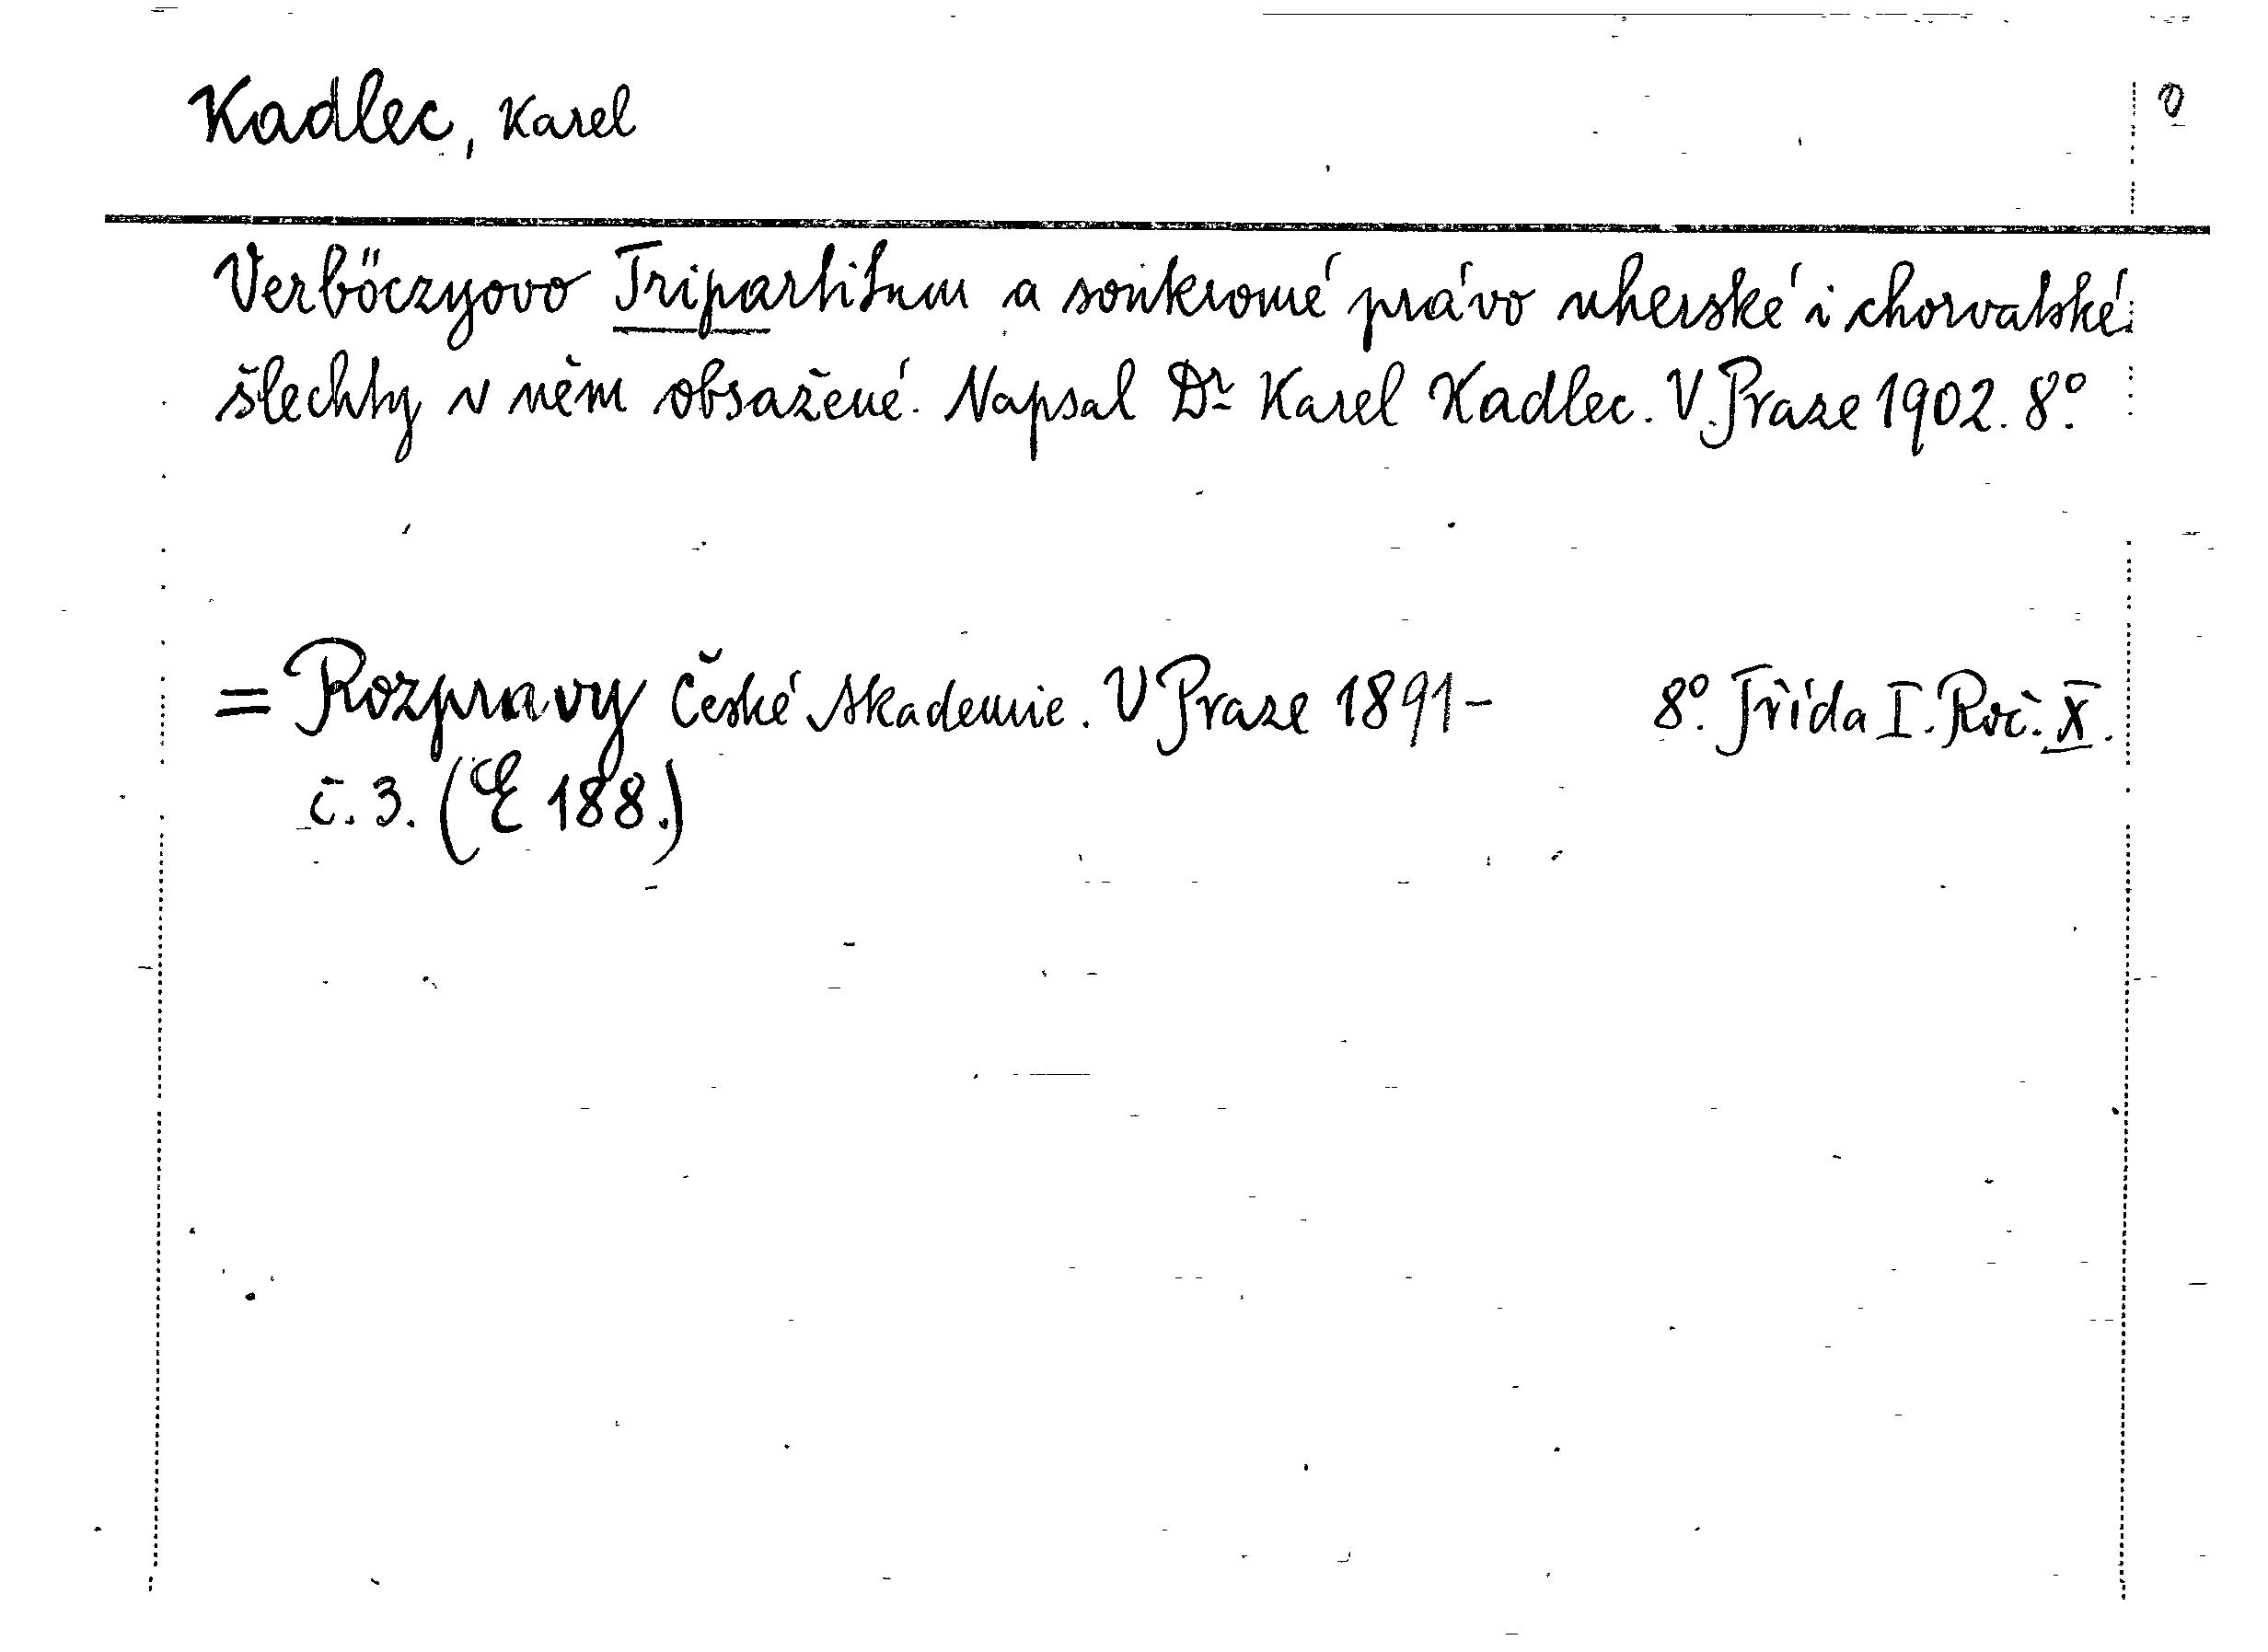 Kadlec, Karel
Verböczyovo Tripartitum a soukromé právo uherské i chorvatské
šlechty v něm obsažené. Napsal Dr Karel Kadlec. V Praze 1902. 8°.
= Rozpravy České Akademie. V Praze 1891- 8°. Třída I. Roč. X.
č. 3. (E 188.)